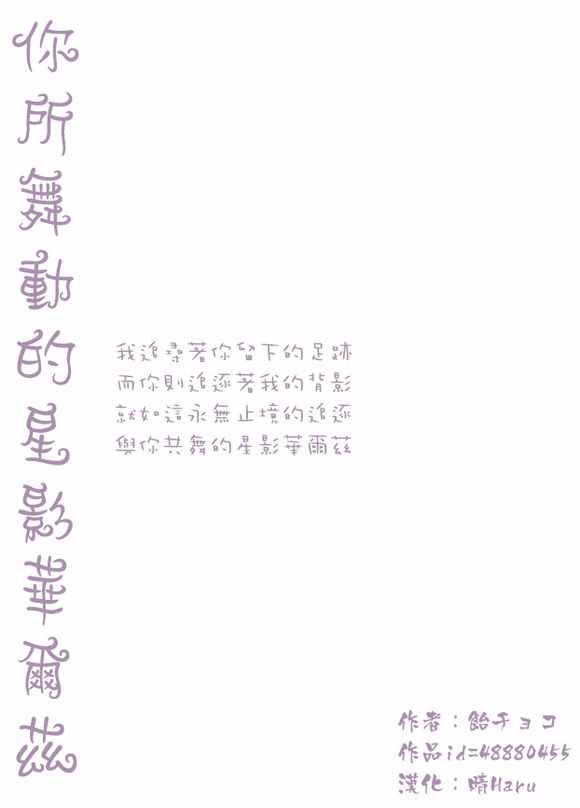 你所舞動的星影華爾茲
我追尋著你留下的足跡
而你則追逐著我的背影
就如這永無止境的追逐
與你共舞的星影華爾茲
作者：飴チョコ
作品id=48880455
漢化：晴Haru